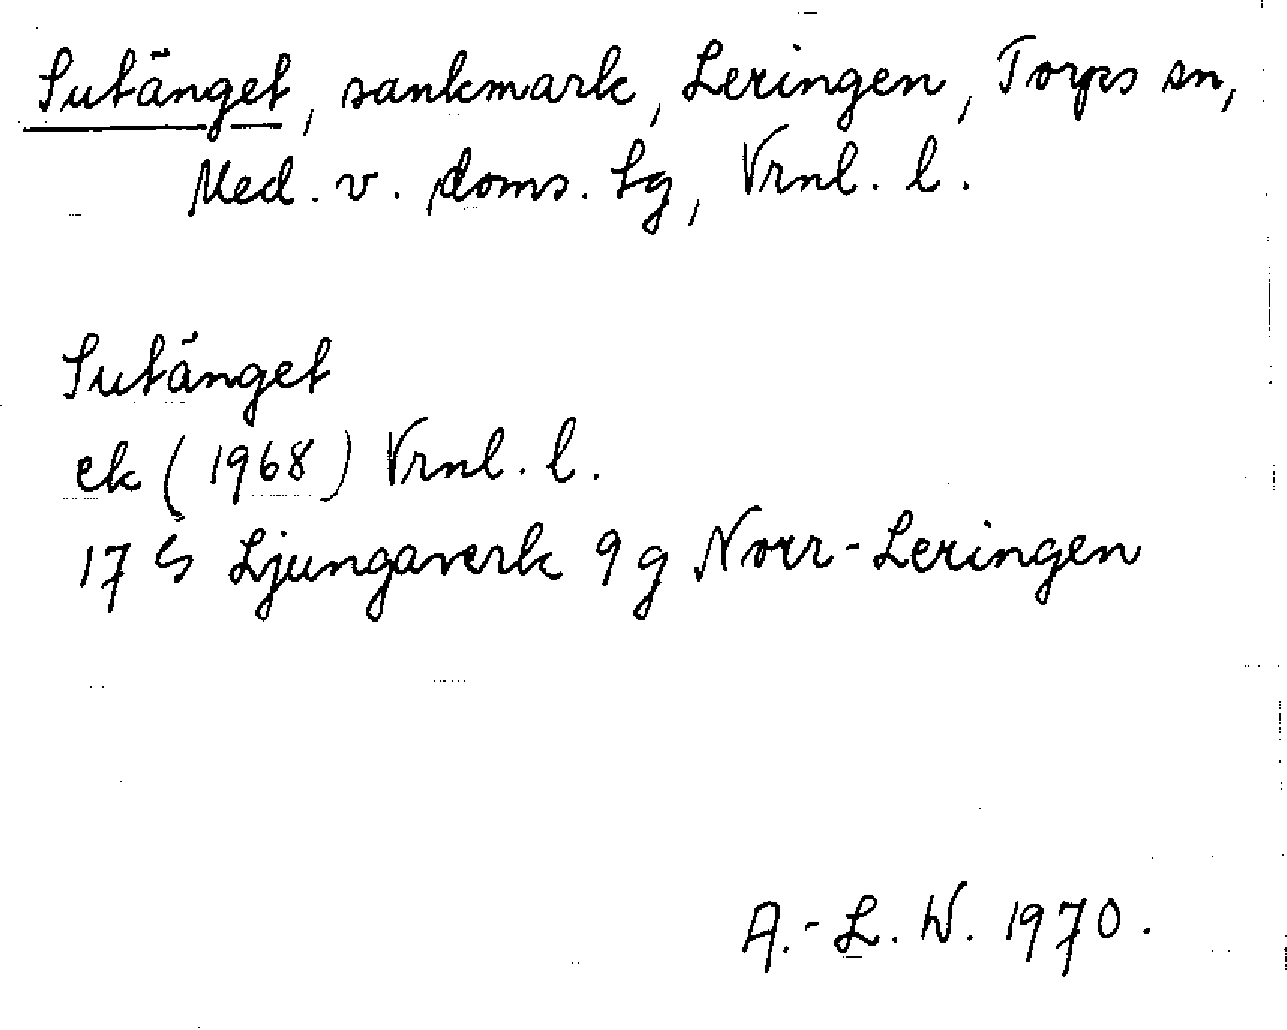 Sutänget, sankmark, Leringen, Torps sn,
Med. v. doms. tg, Vrnl. l.
Sutänget
ek (1968) Vrnl. l.
17 G Ljungaverk 9 g Norr-Leringen
A.-L. W. 1970.